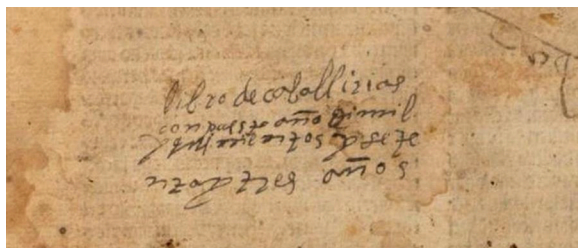 libro de caballirias
conpuesto año de mil
y quinientos y sete
nta y tres años